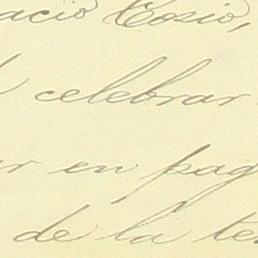 acio Cosio,
celebrar
ar en pag
de la te